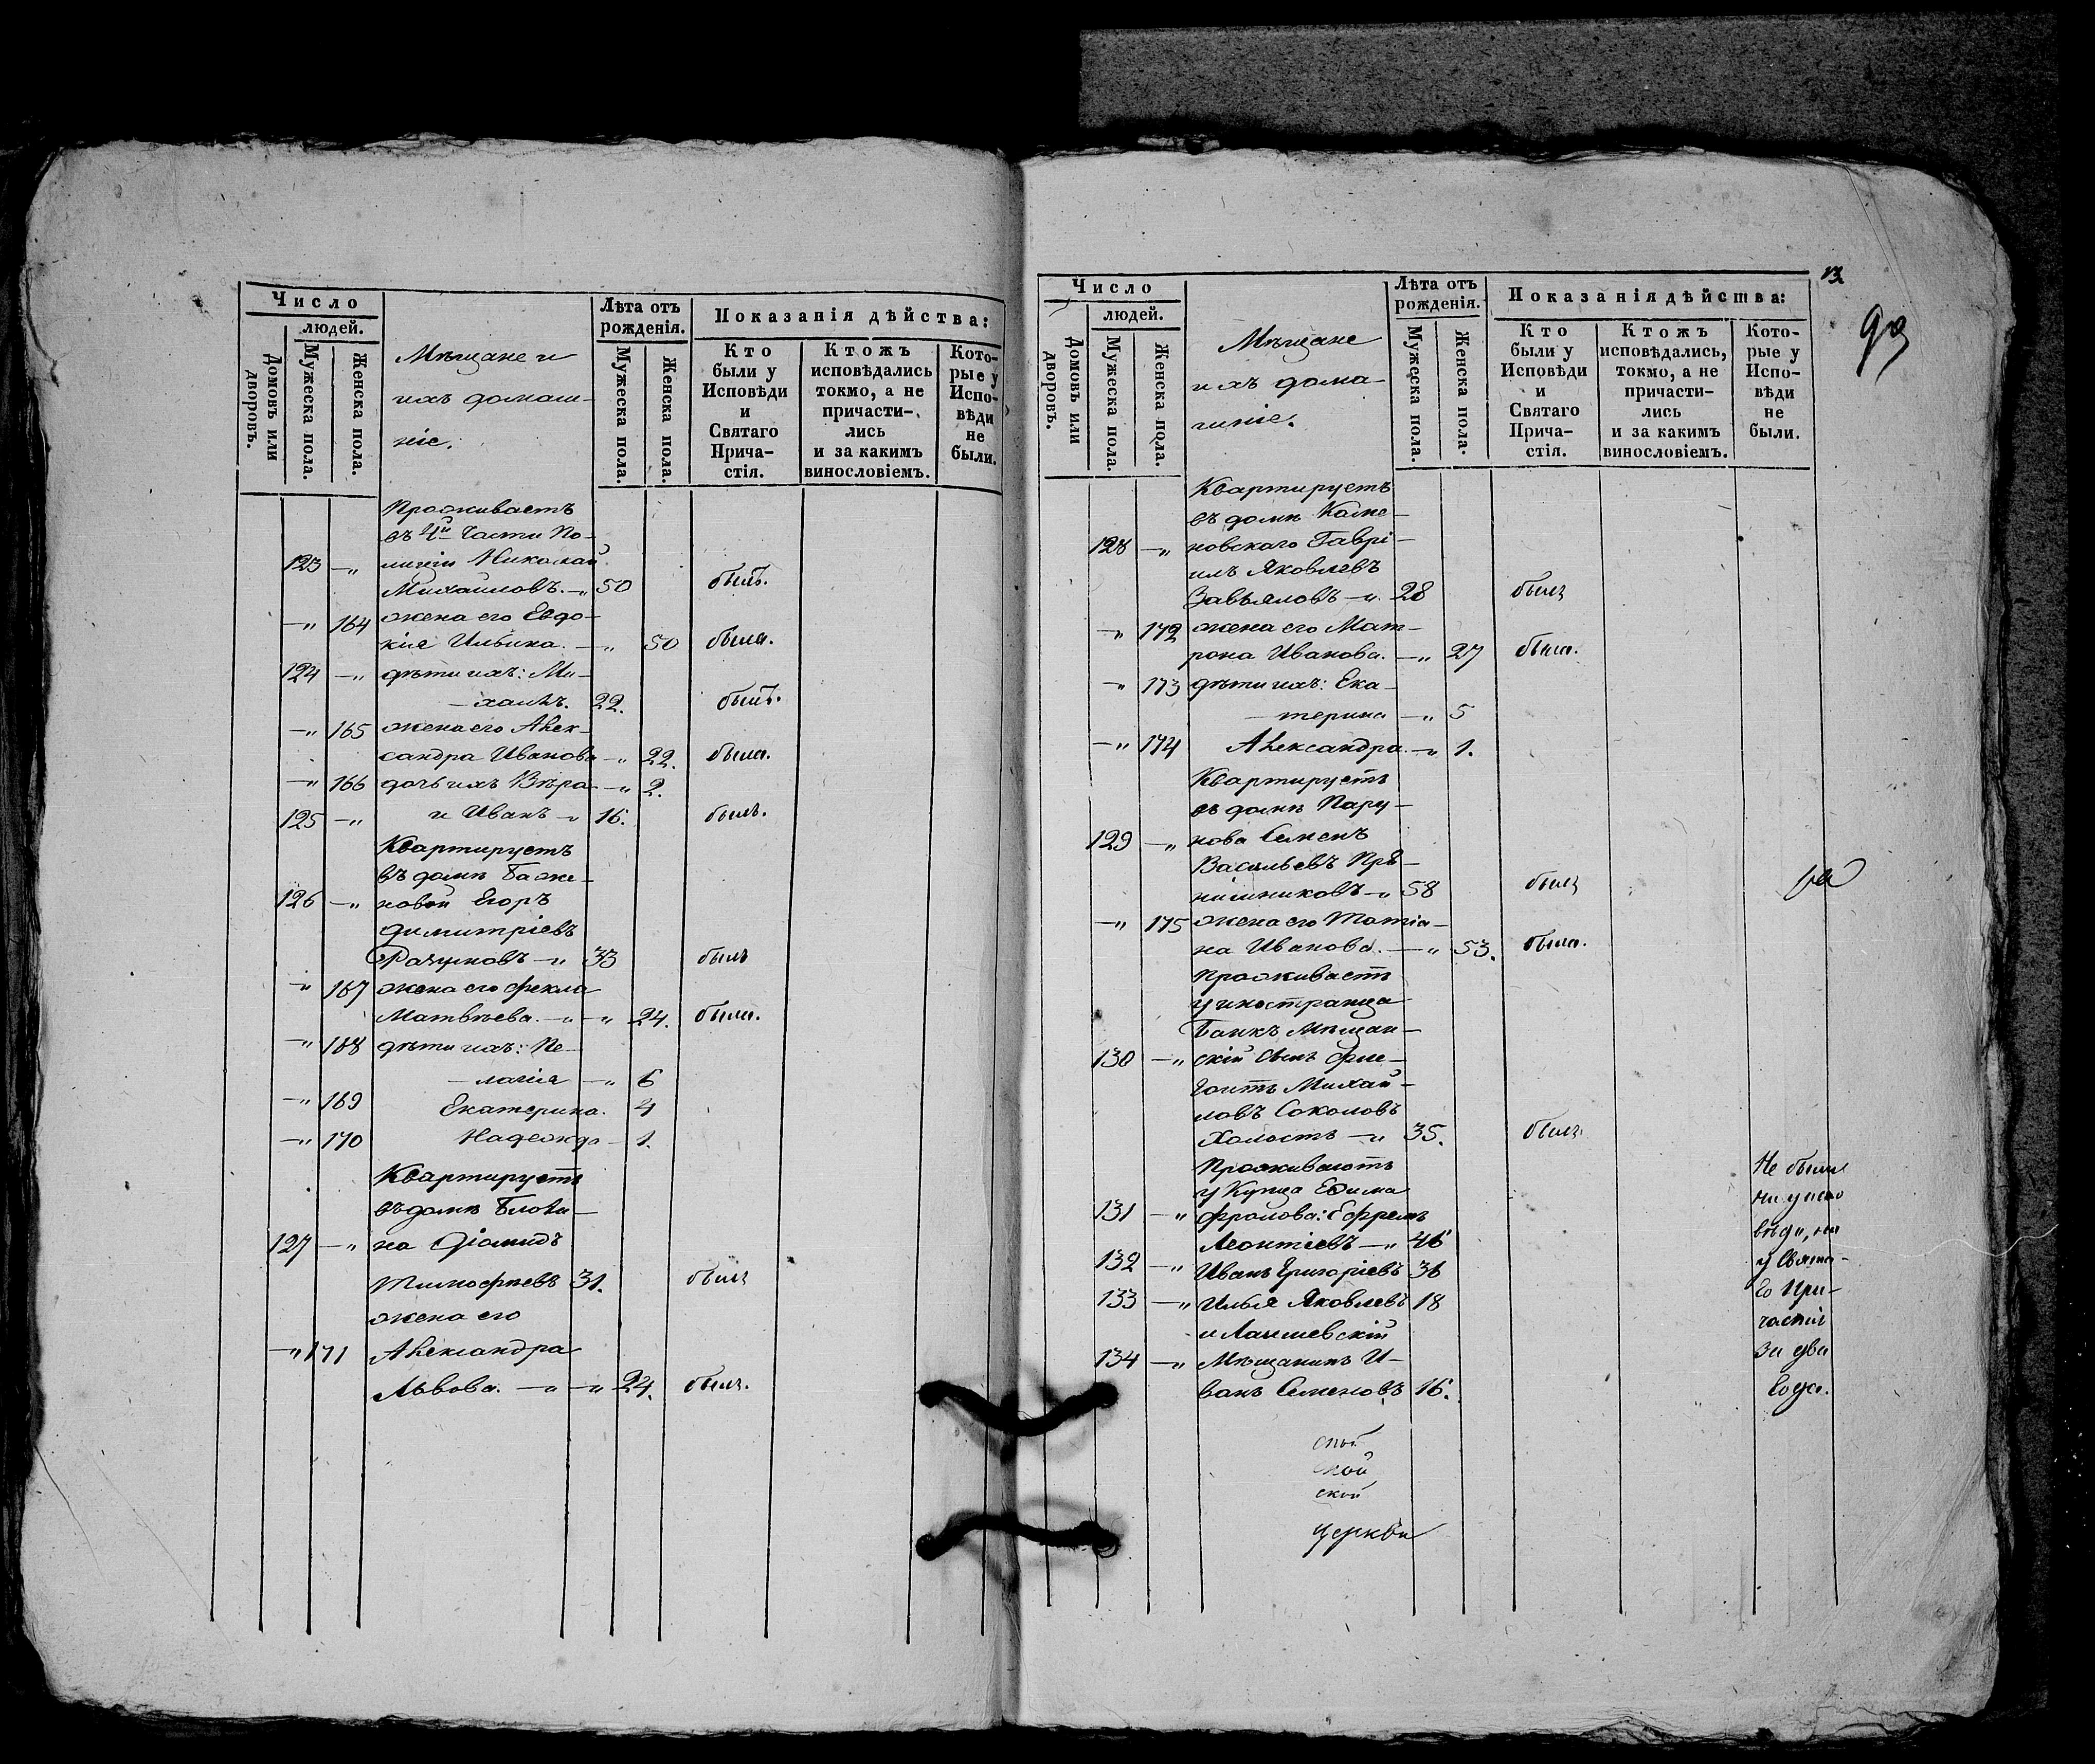 Число
людей.
Домовъ или дворовъ.
Мужеска пола.
Женска пола.
Мѣщане и
ихъ домаш-
ніе.
Лѣта отъ
рожденія.
Мужеска пола.
Женска пола.
Показанія дѣйства:
Кто
были у
Исповѣди
и
Святаго
Прича-
стія.
Ктожъ
исповѣдались
токмо, а не
причасти-
лись
и за какимъ
винословіемъ.
Кото-
рые у
Испо-
вѣди
не
были.
Проживаетъ
въ 4й Части По-
123 —„ лиціи Николай
Михайловъ. —„ 50 былъ.
—„ 164 жена его Евдо-
кія Ильина. —„ 50 была.
124 —„ дѣти ихъ: Ми-
— хаилъ. 22. былъ.
—„ 165 жена его Алек-
сандра Иванова —„ 22. была.
—„ 166 дочь ихъ Вѣра —„ 2.
125 —„ и Иванъ —„ 16. былъ.
Квартируетъ
въ домѣ Баже-
126 —„ новой Егоръ
Димитріевъ
—„ 33 былъ
—„ 167 жена его Фекла
Матвѣева. —„ —„ 24. была.
—„ 168 дѣти ихъ: Пе-
— лагія —„ 6
—„ 169 Екатерина. 4
—„ 170 Надежда — 1.
Квартируетъ
въ домѣ Блохи-
127 —„ на Діомидъ
Тимофѣевъ 31. былъ
жена его
—„ 171 Александра
Львова. —„ —„ 24. былъ.
13
Число
людей.
Домовъ или дворовъ.
Мужеска пола.
Женска пола.
Мѣщане
ихъ дома-
шніе.
Лѣта отъ
рожденія.
Мужеска пола.
Женска пола.
Показанія дѣйства:
Кто
были у
Исповѣди
и
Святаго
Прича-
стія.
Ктожъ
исповѣдались,
токмо, а не
причасти-
лись
и за какимъ
винословіемъ.
Кото-
рые у
Испо-
вѣди
не
были.
Квартируетъ
въ домѣ Каме-
128 —„ новскаго Гаврі-
илъ Яковлевъ
Завьяловъ —„ 28 былъ
—„ 172 жена его Мат-
рона Иванова. —„ 27 была.
—„ 173 дѣти ихъ: Ека-
— терина —„ 5
—„ 174 Александра. —„ 1.
Квартируетъ
въ домѣ Пару-
129 —„ нова Семенъ
Васильевъ Пря-
нишниковъ —„ 58 былъ
—„ 175 жена его Татіа-
на Иванова. —„ 53. была.
Проживаетъ
у иностранца
Банкъ Мѣщан-
130 —„ скій сынъ
Михай-
ловъ Соколовъ
Холостъ —„ 35. былъ
Проживаютъ
у Купца Ефима
131 —„ Фролова: Ефремъ
Леонтіевъ —„ 46
132 —„ Иванъ Григоріевъ 36
133 —„ Илья Яковлевъ 18
и Лаишевскій
134 —„ Мѣщанинъ И-
ванъ Семеновъ 16.
Не были
ни у испо
вѣди, ни
у Свята-
го При-
частія
за два
года.
ской
ской
церкви